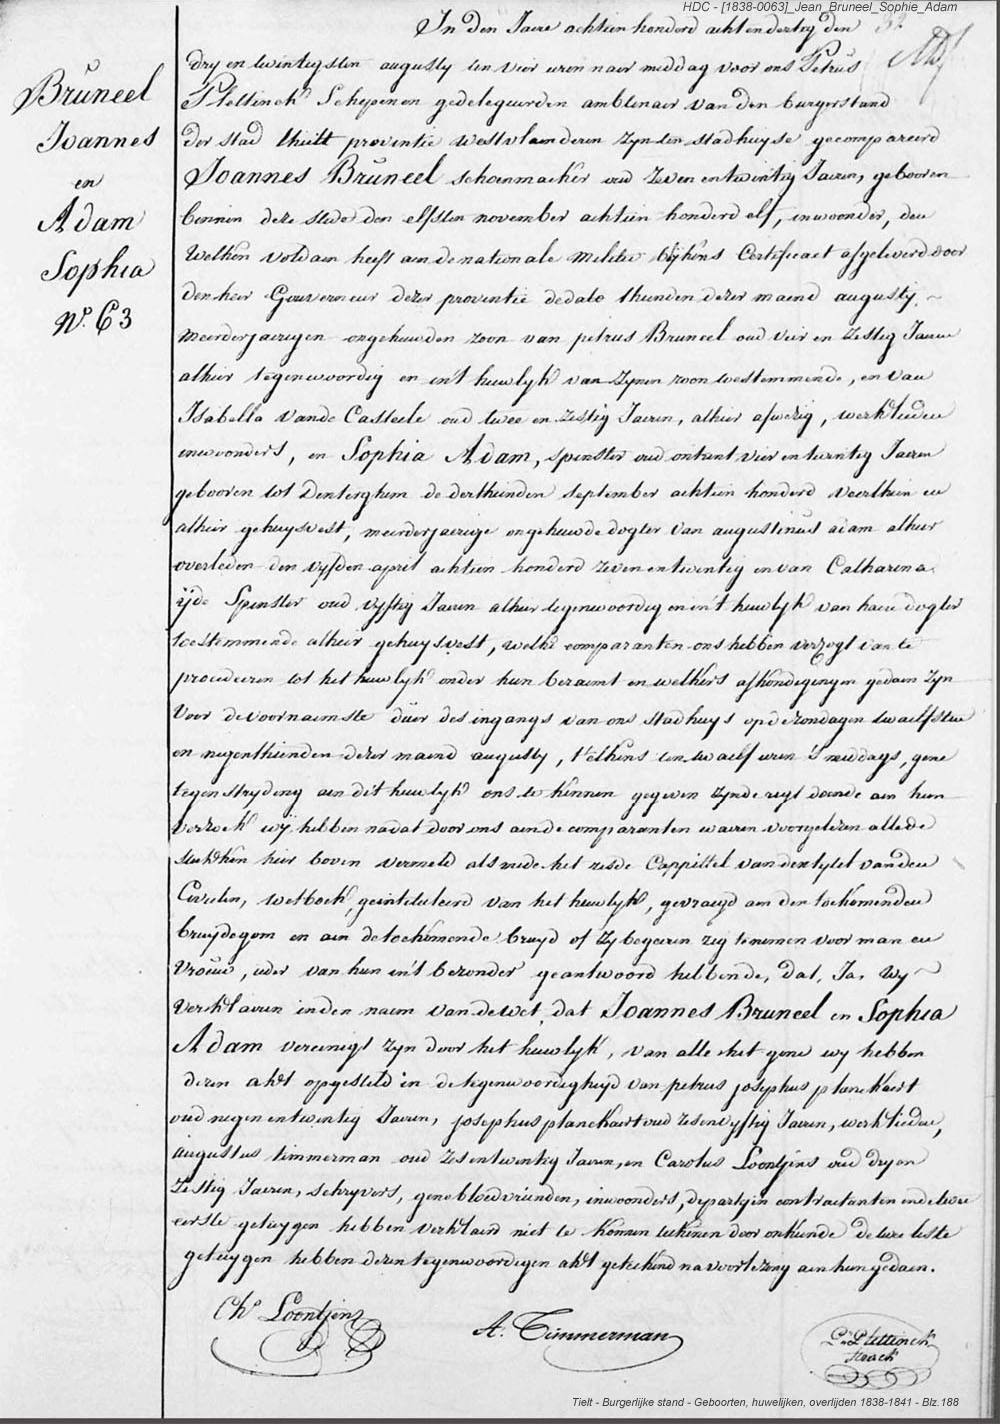 HDC - [1838-0063]_Jean_Bruneel_Sophie_Adam
In den Jaere achtien honderd acht en dertig den
dry en twintigsten augusty ten vier uren naer middag voor ons Petrus
Plettinck Schepen en gedelegueerden ambtenaer van den burgerstand
der stad thielt provintie westvlaenderen zyn ten stadhuyse gecompareerd
Joannes Bruneel schoenmacker oud zeven en twintig Jaeren, gebooren
binnen deze stede den elfsten november achtien honderd elf, inwoonder, den
welken voldaen heeft aen de nationale militie blykens Certificaet afgeleverd door
den heer Gouverneur dezer provintie de dato thienden dezer maend augusty,
meerderjaerigen ongehuwden zoon van petrus Bruneel oud vier en zestig Jaeren
alhier tegenwoordig en in't huwelyk van zynen zoon toestemmende, en van
Isabella Vande Casteele oud twee en zestig Jaeren, alhier afwezig, werklieden
inwoonders, en Sophia Adam, spinster oud ontrent vier en twintig Jaeren
gebooren tot Denterghem de derthienden september achtien honderd veerthien en
alhier gehuysvest, meerderjaerige ongehuwde dogter van augustinus adam alhier
overleden den vyfden april achtien honderd zeven en twintig en van Catharina
ijde Spinster oud vyftig Jaeren alhier tegenwoordig en in't huwelyk van haere dogter
toestemmende alhier gehuysvest, welke comparanten ons hebben verzogt van te
procederen tot het huwelyk onder hun beraemt en welkers afkondigingen gedaen zyn
voor de voornaemste duer des ingangs van ons stadhuys op de zondagen twaelfsten
en negenthienden dezer maend augusty, t'elkens ten twaelf uren 's middags, geene
tegenstryding aen dit huwelyk ons te kennen gegeven zynde regt doende aen hun
verzoek wy hebben nadat door ons aen de comparanten waeren voorgelezen alle de
stukken hier boven vermeld alsmede het zesde Cappittel van den tytel van den
Civielen, wetboek, geintituleerd van het huwelyk, gevraegd aen den toekomenden
bruydegom en aen de toekomende bruyd of zy begeeren zig te nemen voor man en
vrouw, ieder van hun in't bezonder geantwoord hebbende, dat, Ja, Wy
verklaeren in den naem van de wet, dat Joannes Bruneel en Sophia
Adam vereenigt zyn door het huwelyk, van alle het gene wy hebben
dezen akt opgesteld in de tegenwoordigheyd van petrus josephus planckaert
oud negen en twintig Jaeren, josephus planckaert oud zesenvyftig Jaeren, werklieden,
augustus timmerman oud zes en twintig Jaeren, en Carolus Loontjens oud dry en
zestig Jaeren, schryvers, geene bloedvrienden, inwoonders, de partyen contractanten en de twee
eerste getuygen hebben verklaerd niet te konnen teekenen door onkunde de twee leste
getuygen hebben dezen tegenwoordigen akt geteekend na voorlezing aen hun gedaen.
Bruneel
Joannes
en
Adam
Sophia
N.º 63
Chs Loontjens
A. Timmerman
P. Plettinck
Tielt - Burgerlijke stand - Geboorten, huwelijken, overlijden 1838-1841 - Blz.188